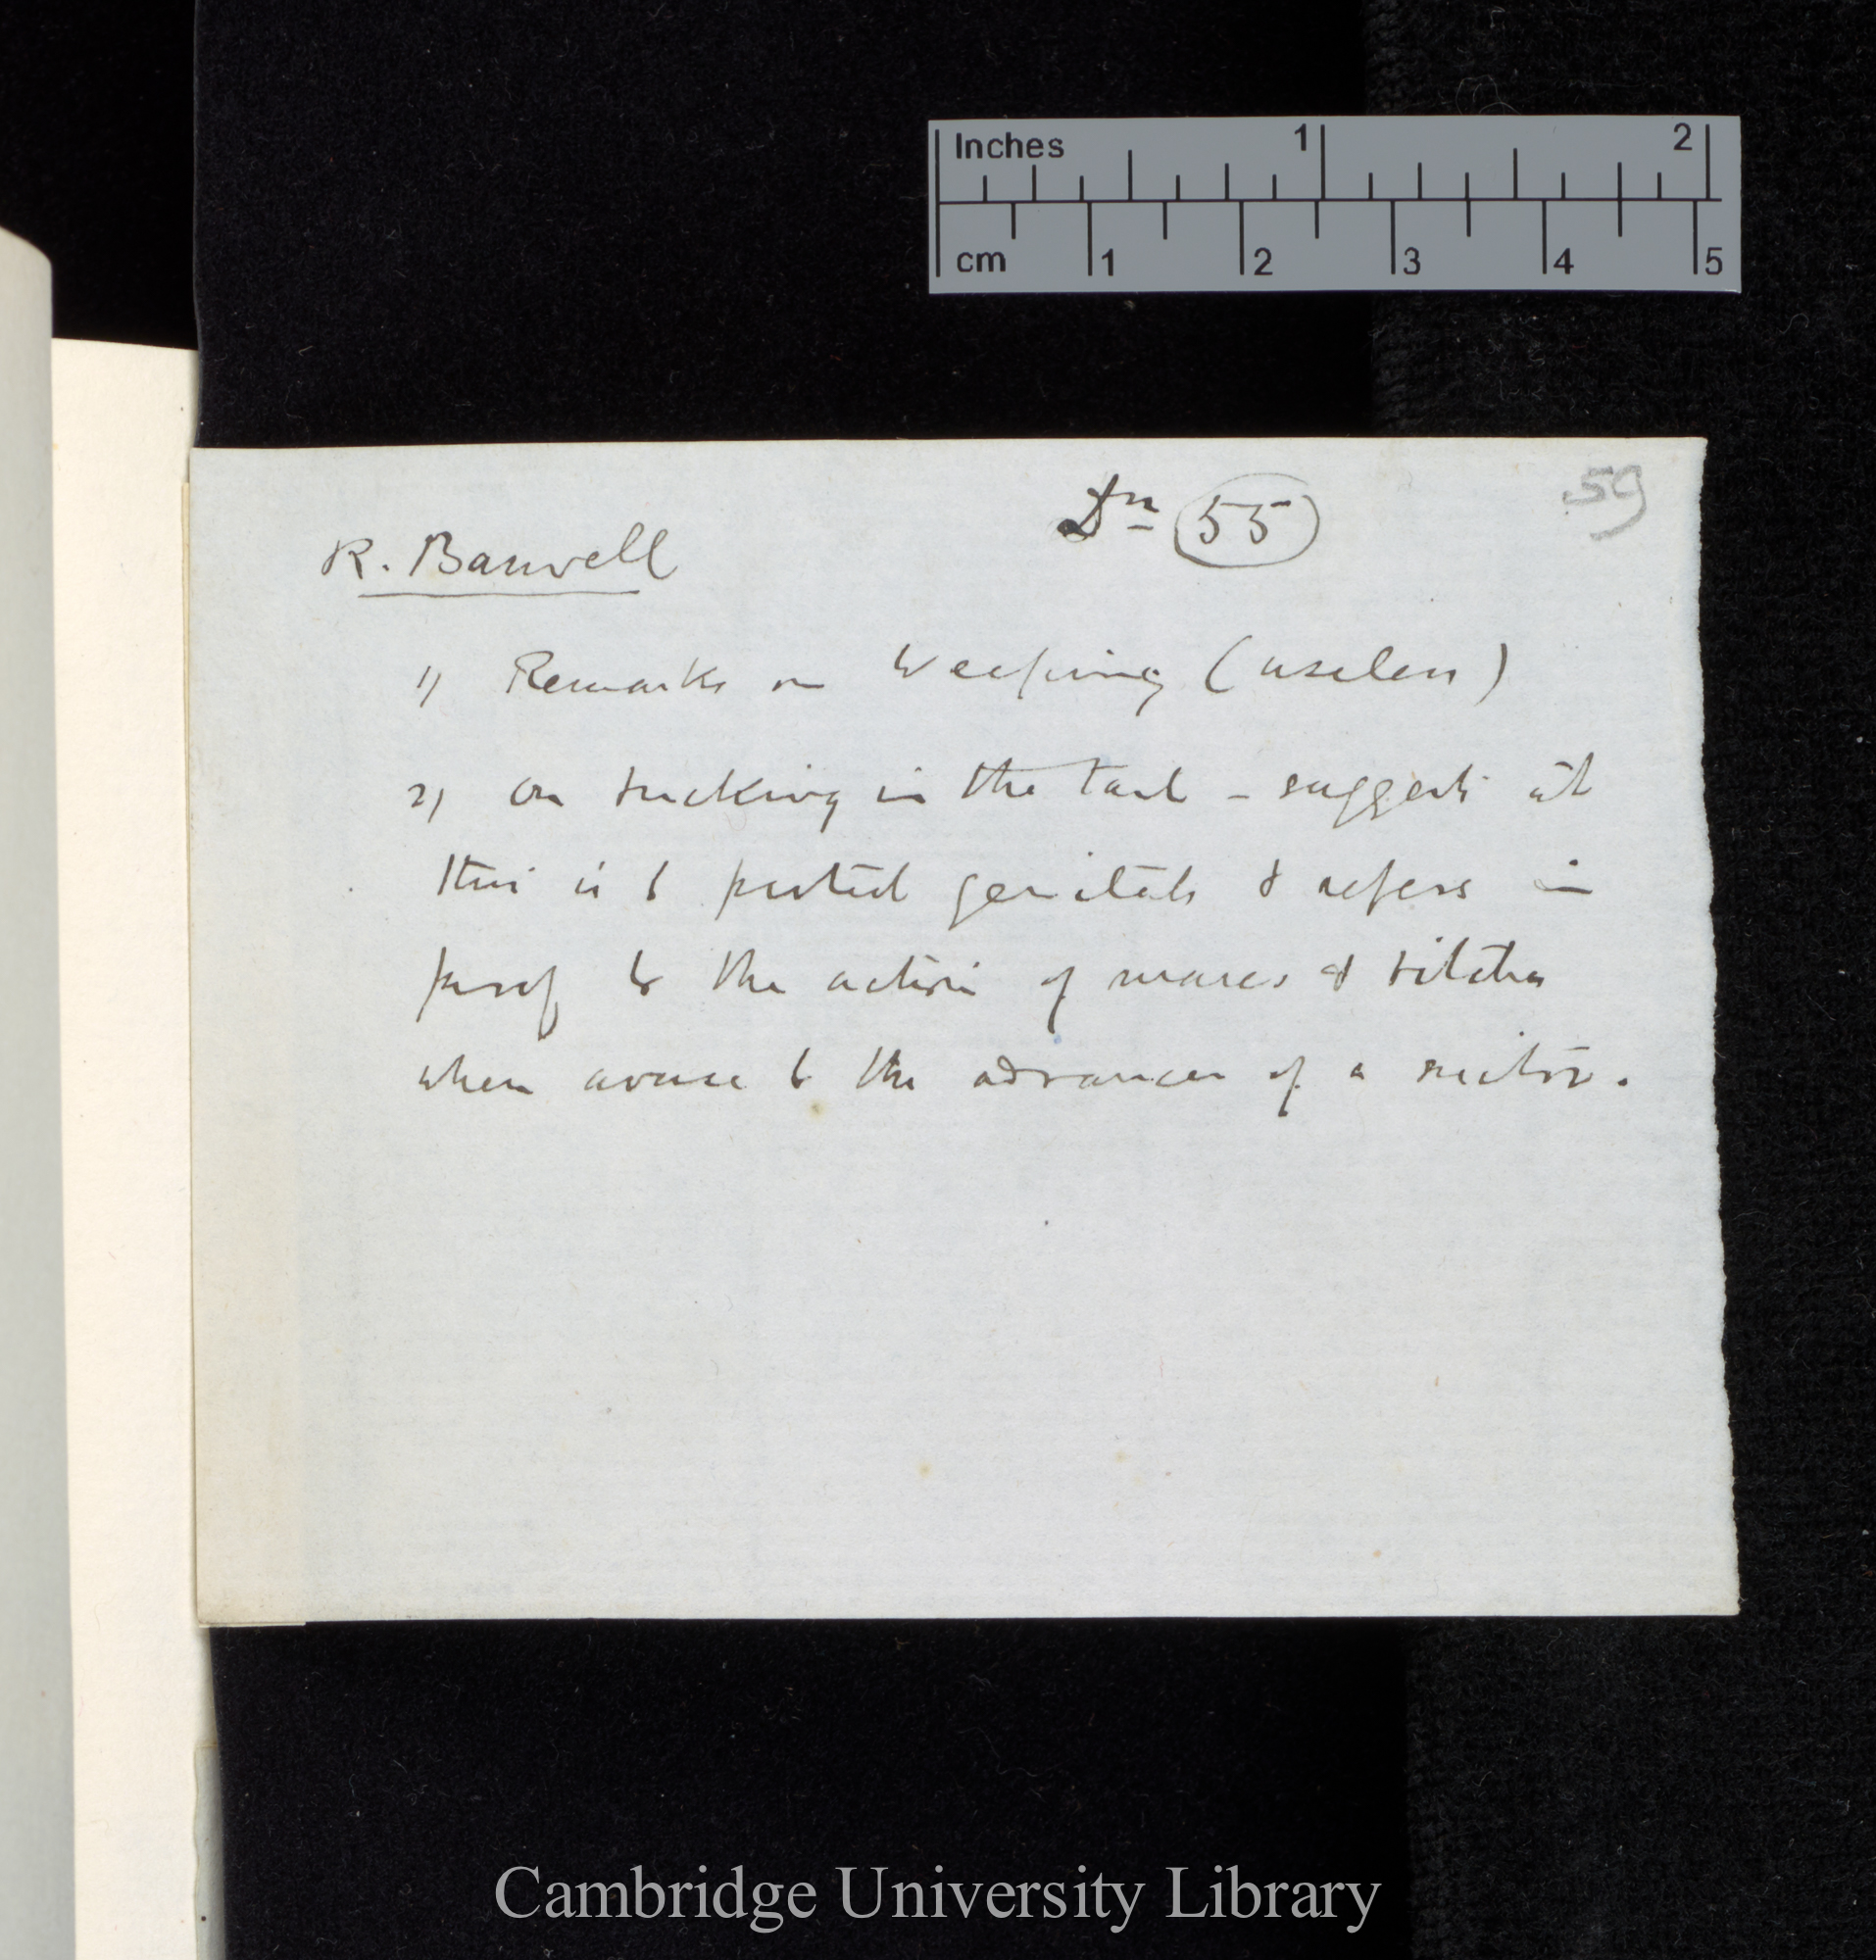 Inches 1 2
cm 1 2 3 4 5
Dn 55
59
R. Barwell
1) Remarks on Weeping (useless)
2) on tucking in the tail – suggests
this is to protect genitals & refers in
proof to the action of mares & bitches
when averse to the advances of a suitor.
Cambridge University Library